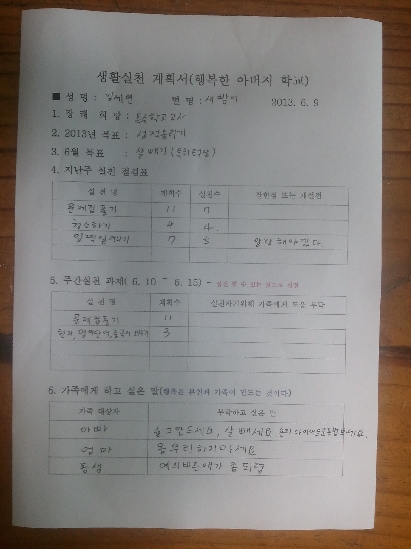 생활실천 계획서(행복한 아버지 학교)
■ 성 명 : 김세연 별 명 : 새람이 2013. 6. 9
1. 장 래 희 망 : 초등학교 교사
2. 2013년 목표 : 성적올리기
3. 6월 목표 : 살 빼기
4. 지난주 실천 점검표
실 천 명 계획수 실천수 잘한점 또는 개선점
문제집풀기 11 7
청소하기 4 4
일찍일어나기 7 5 알람 해야겠다.
5. 주간실천 과제( 6. 10 ~ 6. 15) -
실 천 명 계획수 실천하기위해 가족에게 도움 부탁
문제집풀기 11
한자, 영어단어, 3
6. 가족에게 하고 싶은 말(행복은 본인과 가족이 만드는 것이다)
가족 대상자 부탁하고 싶은 말
아빠 술 그만드세요, 살 빼세요
엄마 몸무리하지마세요
동생